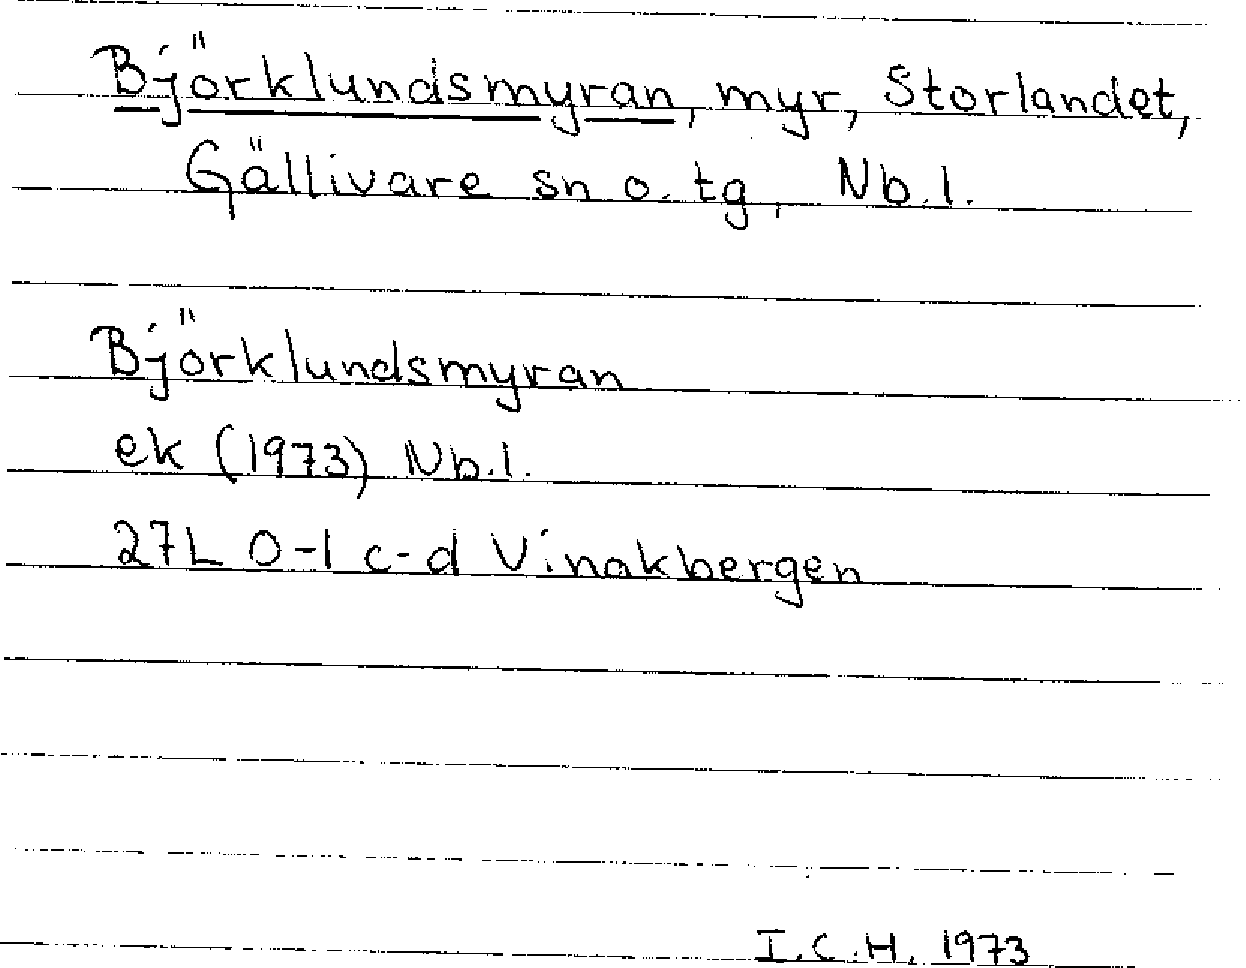 Björklundsmyran, myr, Storlandet,
Gällivare sn o. tg, Nb.l.
Björklundsmyran
ek (1973) Nb.l.
27L 0-1 c-d Vinakbergen
I.C.H. 1973